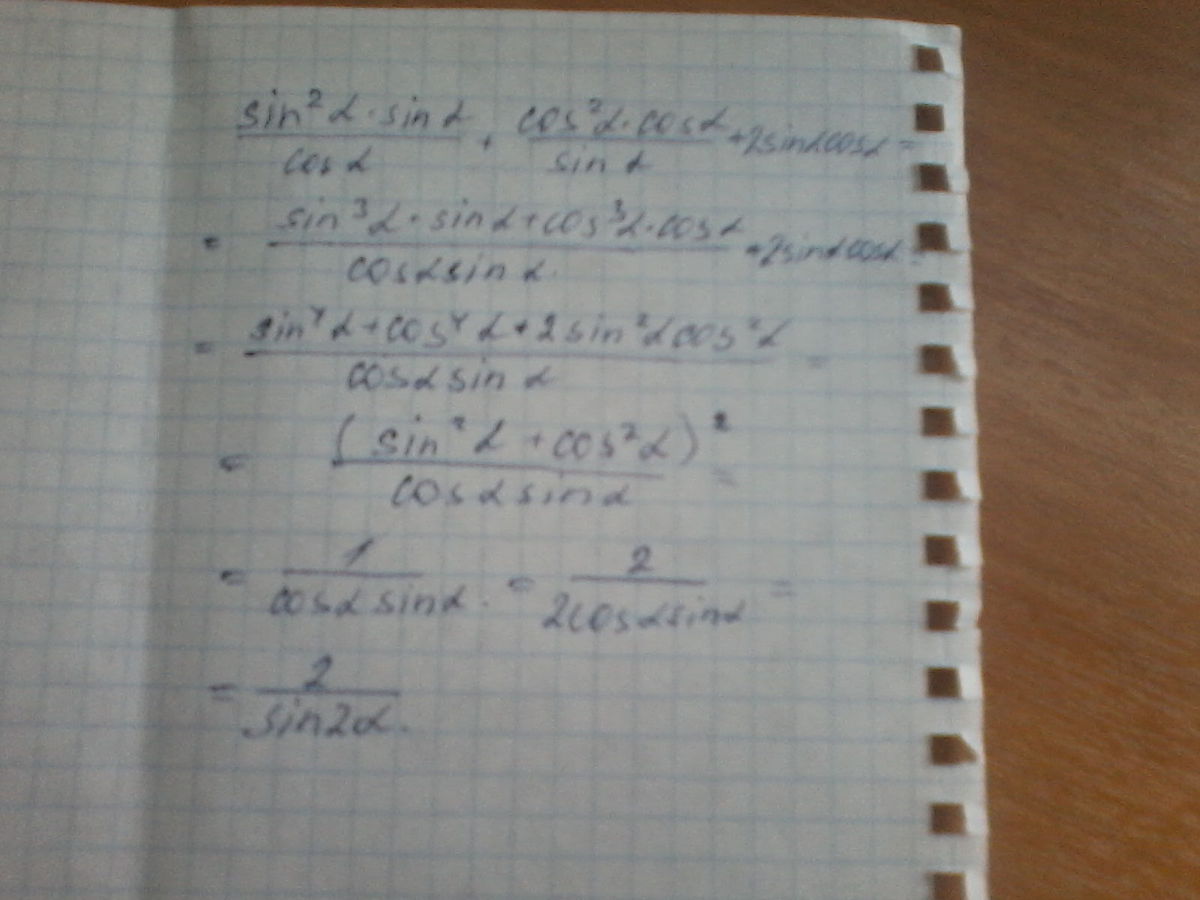 sin²α·sinα/cosα + cos²α·cosα/sinα +2sinαcosα =
= sin³α·sinα+cos³α·cosα/cosαsinα +2sinαcosα =
= sin⁴α+cos⁴α+2sin²αcos²α/cosαsinα =
= (sin²α+cos²α)²/cosαsinα =
= 1/cosαsinα. = 2/2cosαsinα =
= 2/sin2α.